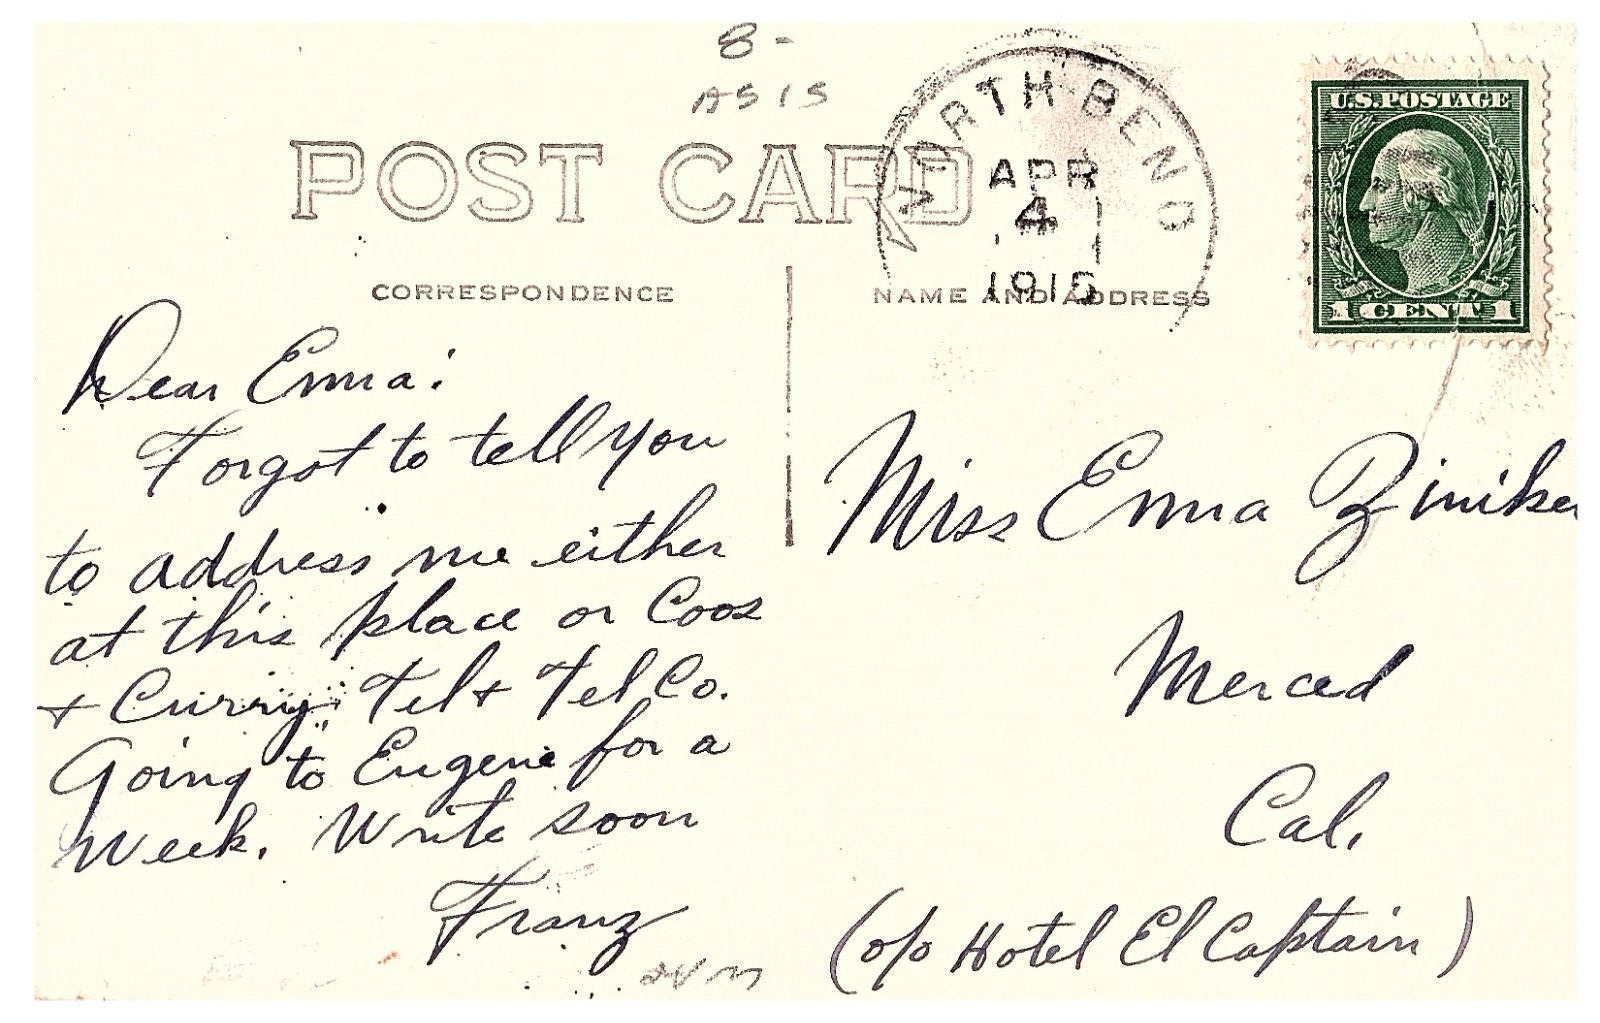 8-
AS IS
POST CARD
NORTH BEND
APR
4
1916
U.S. POSTAGE
1 CENT 1
CORRESPONDENCE
NAME AND ADDRESS
Dear Emma:
Forgot to tell you
to address me either
at this place or Coos
+ Curry Tel + Tel Co.
Going to Eugene for a
Week. Write soon
Franz
Miss Emma Ziniker
Merced
Cal.
(c/o Hotel El Captain)